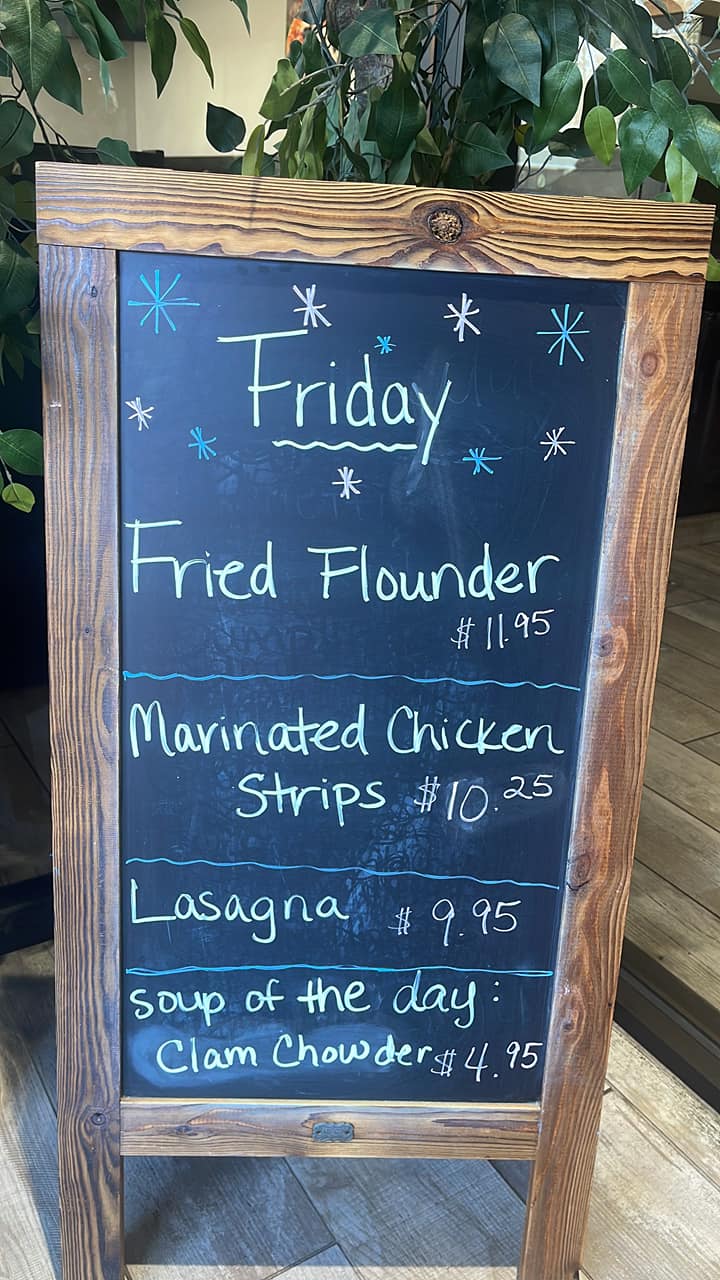 Friday
Fried Flounder
$11.95
Marinated Chicken
Strips $10.25
Lasagna $9.95
soup of the day:
Clam Chowder $4.95